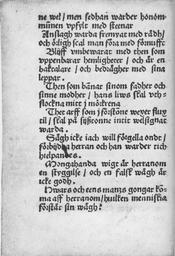 ne wel/ men sedhan warder honom
munnen vpfylt med steenar
Anslagh warda stemyat med rådh/
och örligh skal man föra med förnufft
Bliff vmbewarat med them som
vppenbarar hemligheter/ och är en
haktalare/ och bedrägher med sina
leppar.
Then som bannar sinom fadher och
sinne modher/ hans liws skal vth/
slockna mitt j mörkena
Thet arff som j förstone weyer fliuy
til/ skal på sijstonne inthe welsignat
warda.
Sägh icke iach will förgella ondt/
förbijdha herran och han warder tich
hielpandes.
Mongahanda wigt är herranom
en styggilse/ och en falsk wågh är
icke godh.
Hwars och eens mantz gongar kõ
ma aff herranom/ huilken menniskia
förstår sin wägh?